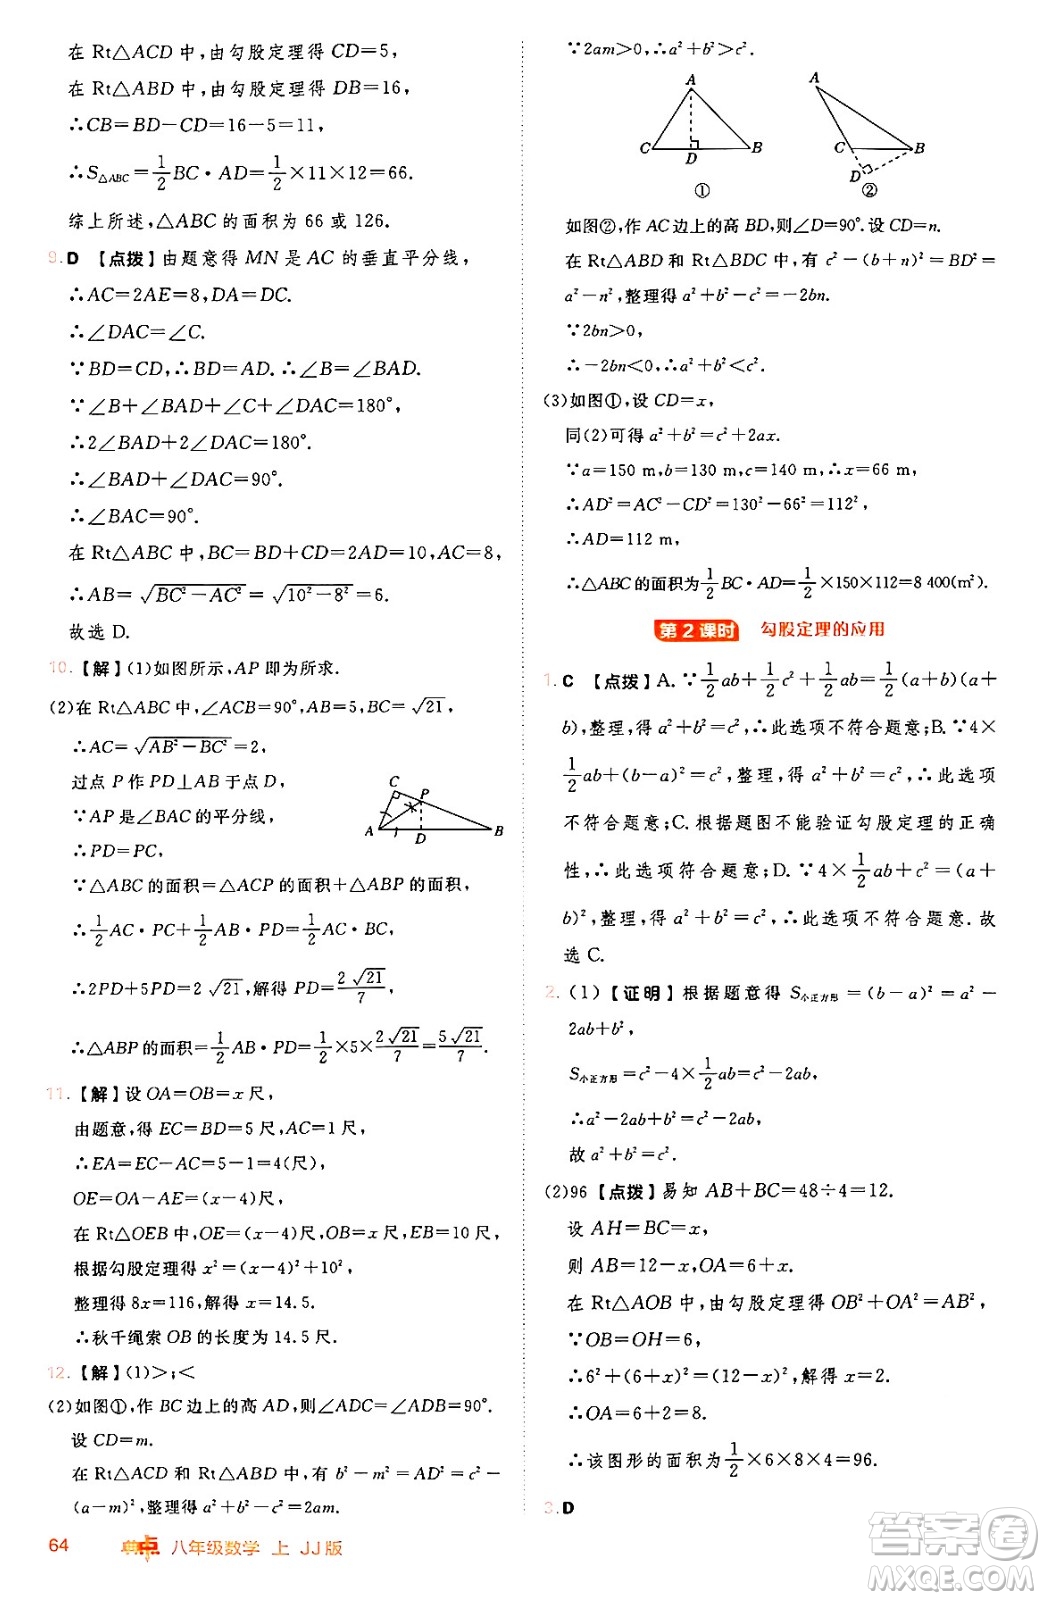 在 Rt△ACD 中,由勾股定理得 CD=5,
在 Rt△ABD 中,由勾股定理得 DB=16,
∴CB=BD-CD=16-5=11,
∴S△ABC=1/2 BC·AD=1/2×11×12=66.
综上所述,△ABC 的面积为 66 或 126.
9. D 【点拨】由题意得 MN 是 AC 的垂直平分线,
∴AC=2AE=8,DA=DC.
∴∠DAC=∠C.
∵BD=CD,∴BD=AD.
∴∠B=∠BAD.
∵∠B+∠BAD+∠C+∠DAC=180°,
∴2∠BAD+2∠DAC=180°.
∴∠BAD+∠DAC=90°.
∴∠BAC=90°.
在 Rt△ABC 中,BC=BD+CD=2AD=10,AC=8,
∴AB=√(BC²-AC²)=√(10²-8²)=6.
故选 D.
10. 【解】(1)如图所示,AP 即为所求.
(2)在 Rt△ABC 中,∠ACB=90°,AB=5,BC=√21,
∴AC=√(AB²-BC²)=2,
过点 P 作 PD⊥AB 于点 D,
∵AP 是∠BAC 的平分线,
∴PD=PC,
∵△ABC 的面积=△ACP 的面积+△ABP 的面积,
∴1/2 AC·PC+1/2 AB·PD=1/2 AC·BC,
∴2PD+5PD=2√21,解得 PD=2√21/7,
∴△ABP 的面积=1/2 AB·PD=1/2×5×2√21/7=5√21/7.
C
P
A
D
B
11. 【解】设 OA=OB=x 尺,
由题意,得 EC=BD=5 尺,AC=1 尺,
∴EA=EC-AC=5-1=4(尺),
OE=OA-AE=(x-4)尺,
在 Rt△OEB 中,OE=(x-4)尺,OB=x 尺,EB=10 尺,
根据勾股定理得 x²=(x-4)²+10²,
整理得 8x=116,解得 x=14.5.
∴秋千绳索 OB 的长度为 14.5 尺.
12. 【解】(1)>;<
(2)如图①,作 BC 边上的高 AD,则∠ADC=∠ADB=90°.
设 CD=m.
在 Rt△ACD 和 Rt△ABD 中,有 b²-m²=AD²=c²-
(a-m)²,整理得 a²+b²-c²=2am.
∵2am>0,∴a²+b²>c².
A
C
D
B
①
A
C
B
D
②
如图②,作 AC 边上的高 BD,则∠D=90°.设 CD=n.
在 Rt△ABD 和 Rt△BDC 中,有 c²-(b+n)²=BD²=
a²-n²,整理得 a²+b²-c²=-2bn.
∵2bn>0,
∴-2bn<0,∴a²+b²<c².
(3)如图①,设 CD=x,
同(2)可得 a²+b²=c²+2ax.
∵a=150 m,b=130 m,c=140 m,∴x=66 m,
∴AD²=AC²-CD²=130²-66²=112²,
∴AD=112 m,
∴△ABC 的面积为1/2 BC·AD=1/2×150×112=8 400(m²).
第 2 课时 勾股定理的应用
1. C 【点拨】A.∵1/2 ab+1/2 c²+1/2 ab=1/2(a+b)(a+
b),整理,得 a²+b²=c²,∴此选项不符合题意;B.∵4×
1/2 ab+(b-a)²=c²,整理,得 a²+b²=c²,∴此选项
不符合题意;C.根据题图不能验证勾股定理的正确
性,∴此选项符合题意;D.∵4×1/2 ab+c²=(a+
b)²,整理,得 a²+b²=c²,∴此选项不符合题意.故
选 C.
2. (1)【证明】根据题意得 S小正方形=(b-a)²=a²-
2ab+b²,
S小正方形=c²-4×1/2 ab=c²-2ab,
∴a²-2ab+b²=c²-2ab,
故 a²+b²=c².
(2)96 【点拨】易知 AB+BC=48÷4=12.
设 AH=BC=x,
则 AB=12-x,OA=6+x.
在 Rt△AOB 中,由勾股定理得 OB²+OA²=AB²,
∵OB=OH=6,
∴6²+(6+x)²=(12-x)²,解得 x=2.
∴OA=6+2=8.
∴该图形的面积为1/2×6×8×4=96.
3. D
64 典点 八年级数学 上 JJ版
答案圈
MXQE.COM